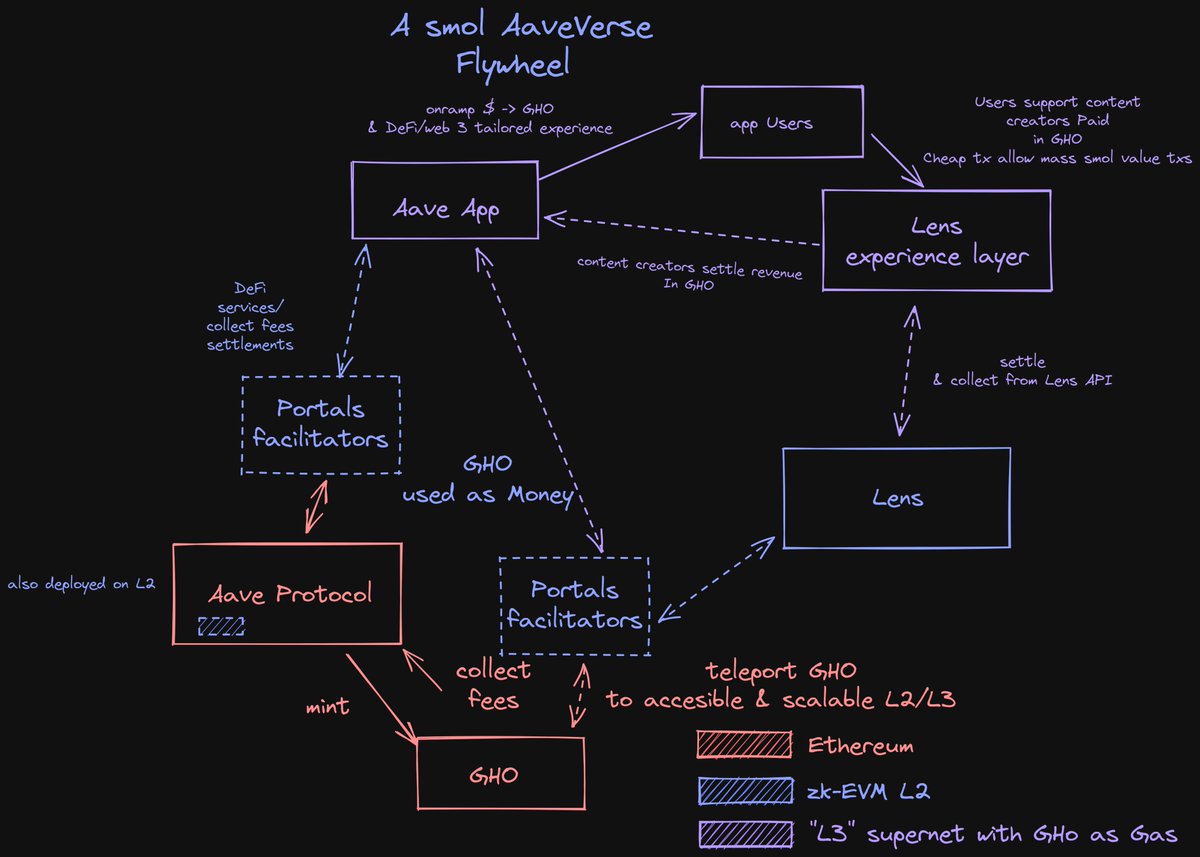 A smol AaveVerse
Flywheel
onramp $ -> GHO
& DeFi/web 3 tailored experience
app Users
Users support content
creators Paid
in GHO
Cheap tx allow mass smol value txs
Aave App
Lens
experience layer
content creators settle revenue
In GHO
DeFi
services/
collect fees
settlements
settle
& collect from Lens API
Portals
facilitators
GHO
used as Money
Lens
also deployed on L2
Aave Protocol
Portals
facilitators
collect
fees
mint
teleport GHO
to accesible & scalable L2/L3
GHO
Ethereum
zk-EVM L2
"L3" supernet with GHo as Gas